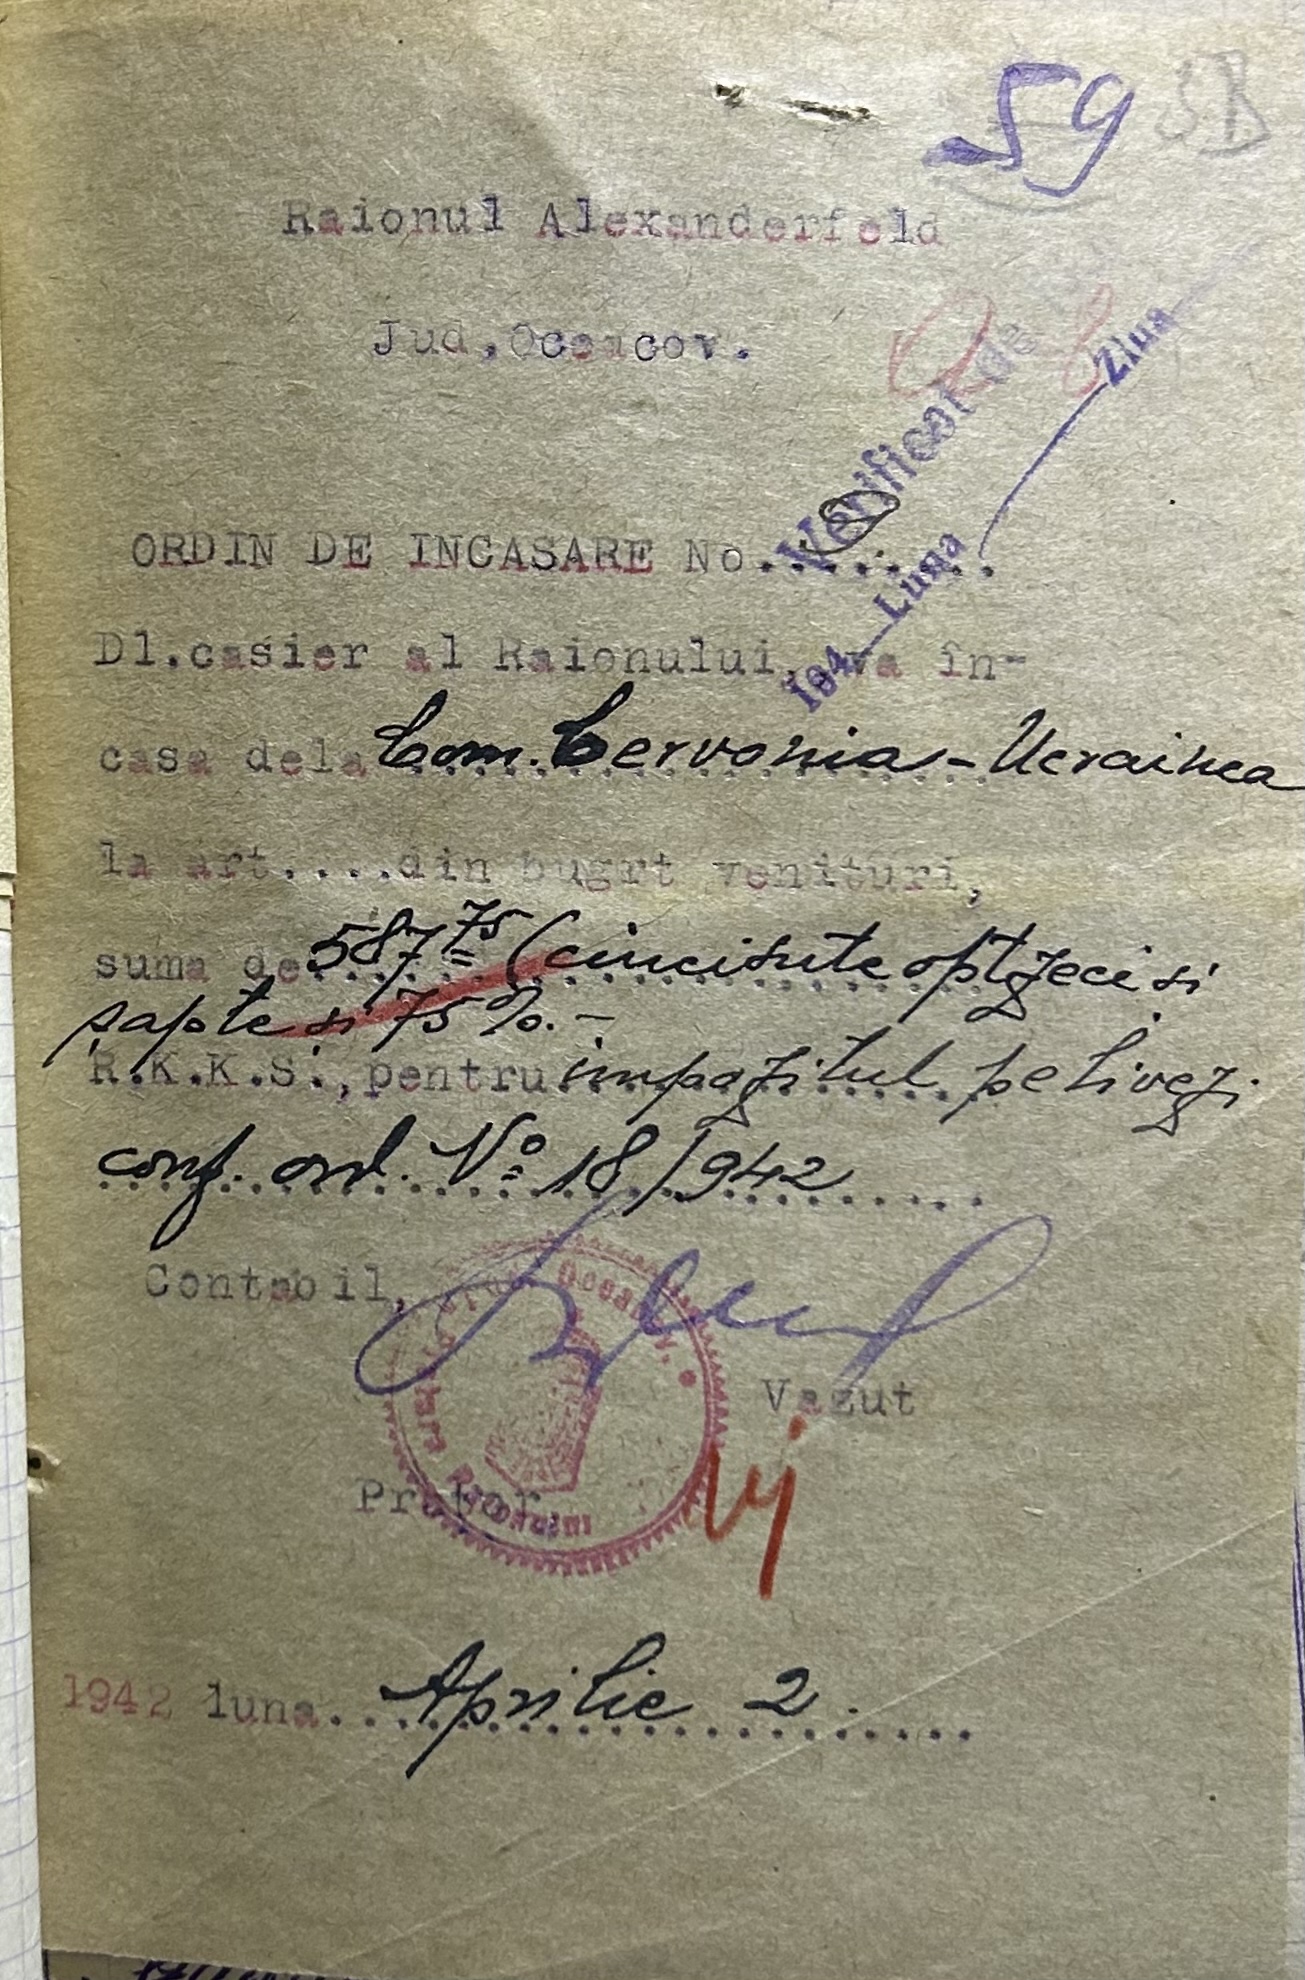 59
Raionul Alexanderfeld
Jud.Oceacov.
Verificat de
194 Luna Ziua
ORDIN DE INCASARE No.........
Dl.casier al Raionului, va în-
casa dela Com. Cervonia - Ucrainca
la art....din bugrt venituri,
suma de 587 75 (cincisute optzeci si
șapte și 75%. -
R.K.K.S., pentru impozitul pe livezi
conf. ord. No 18/942
Contabil,
Vazut
Pretor
1942 luna Aprilie 2